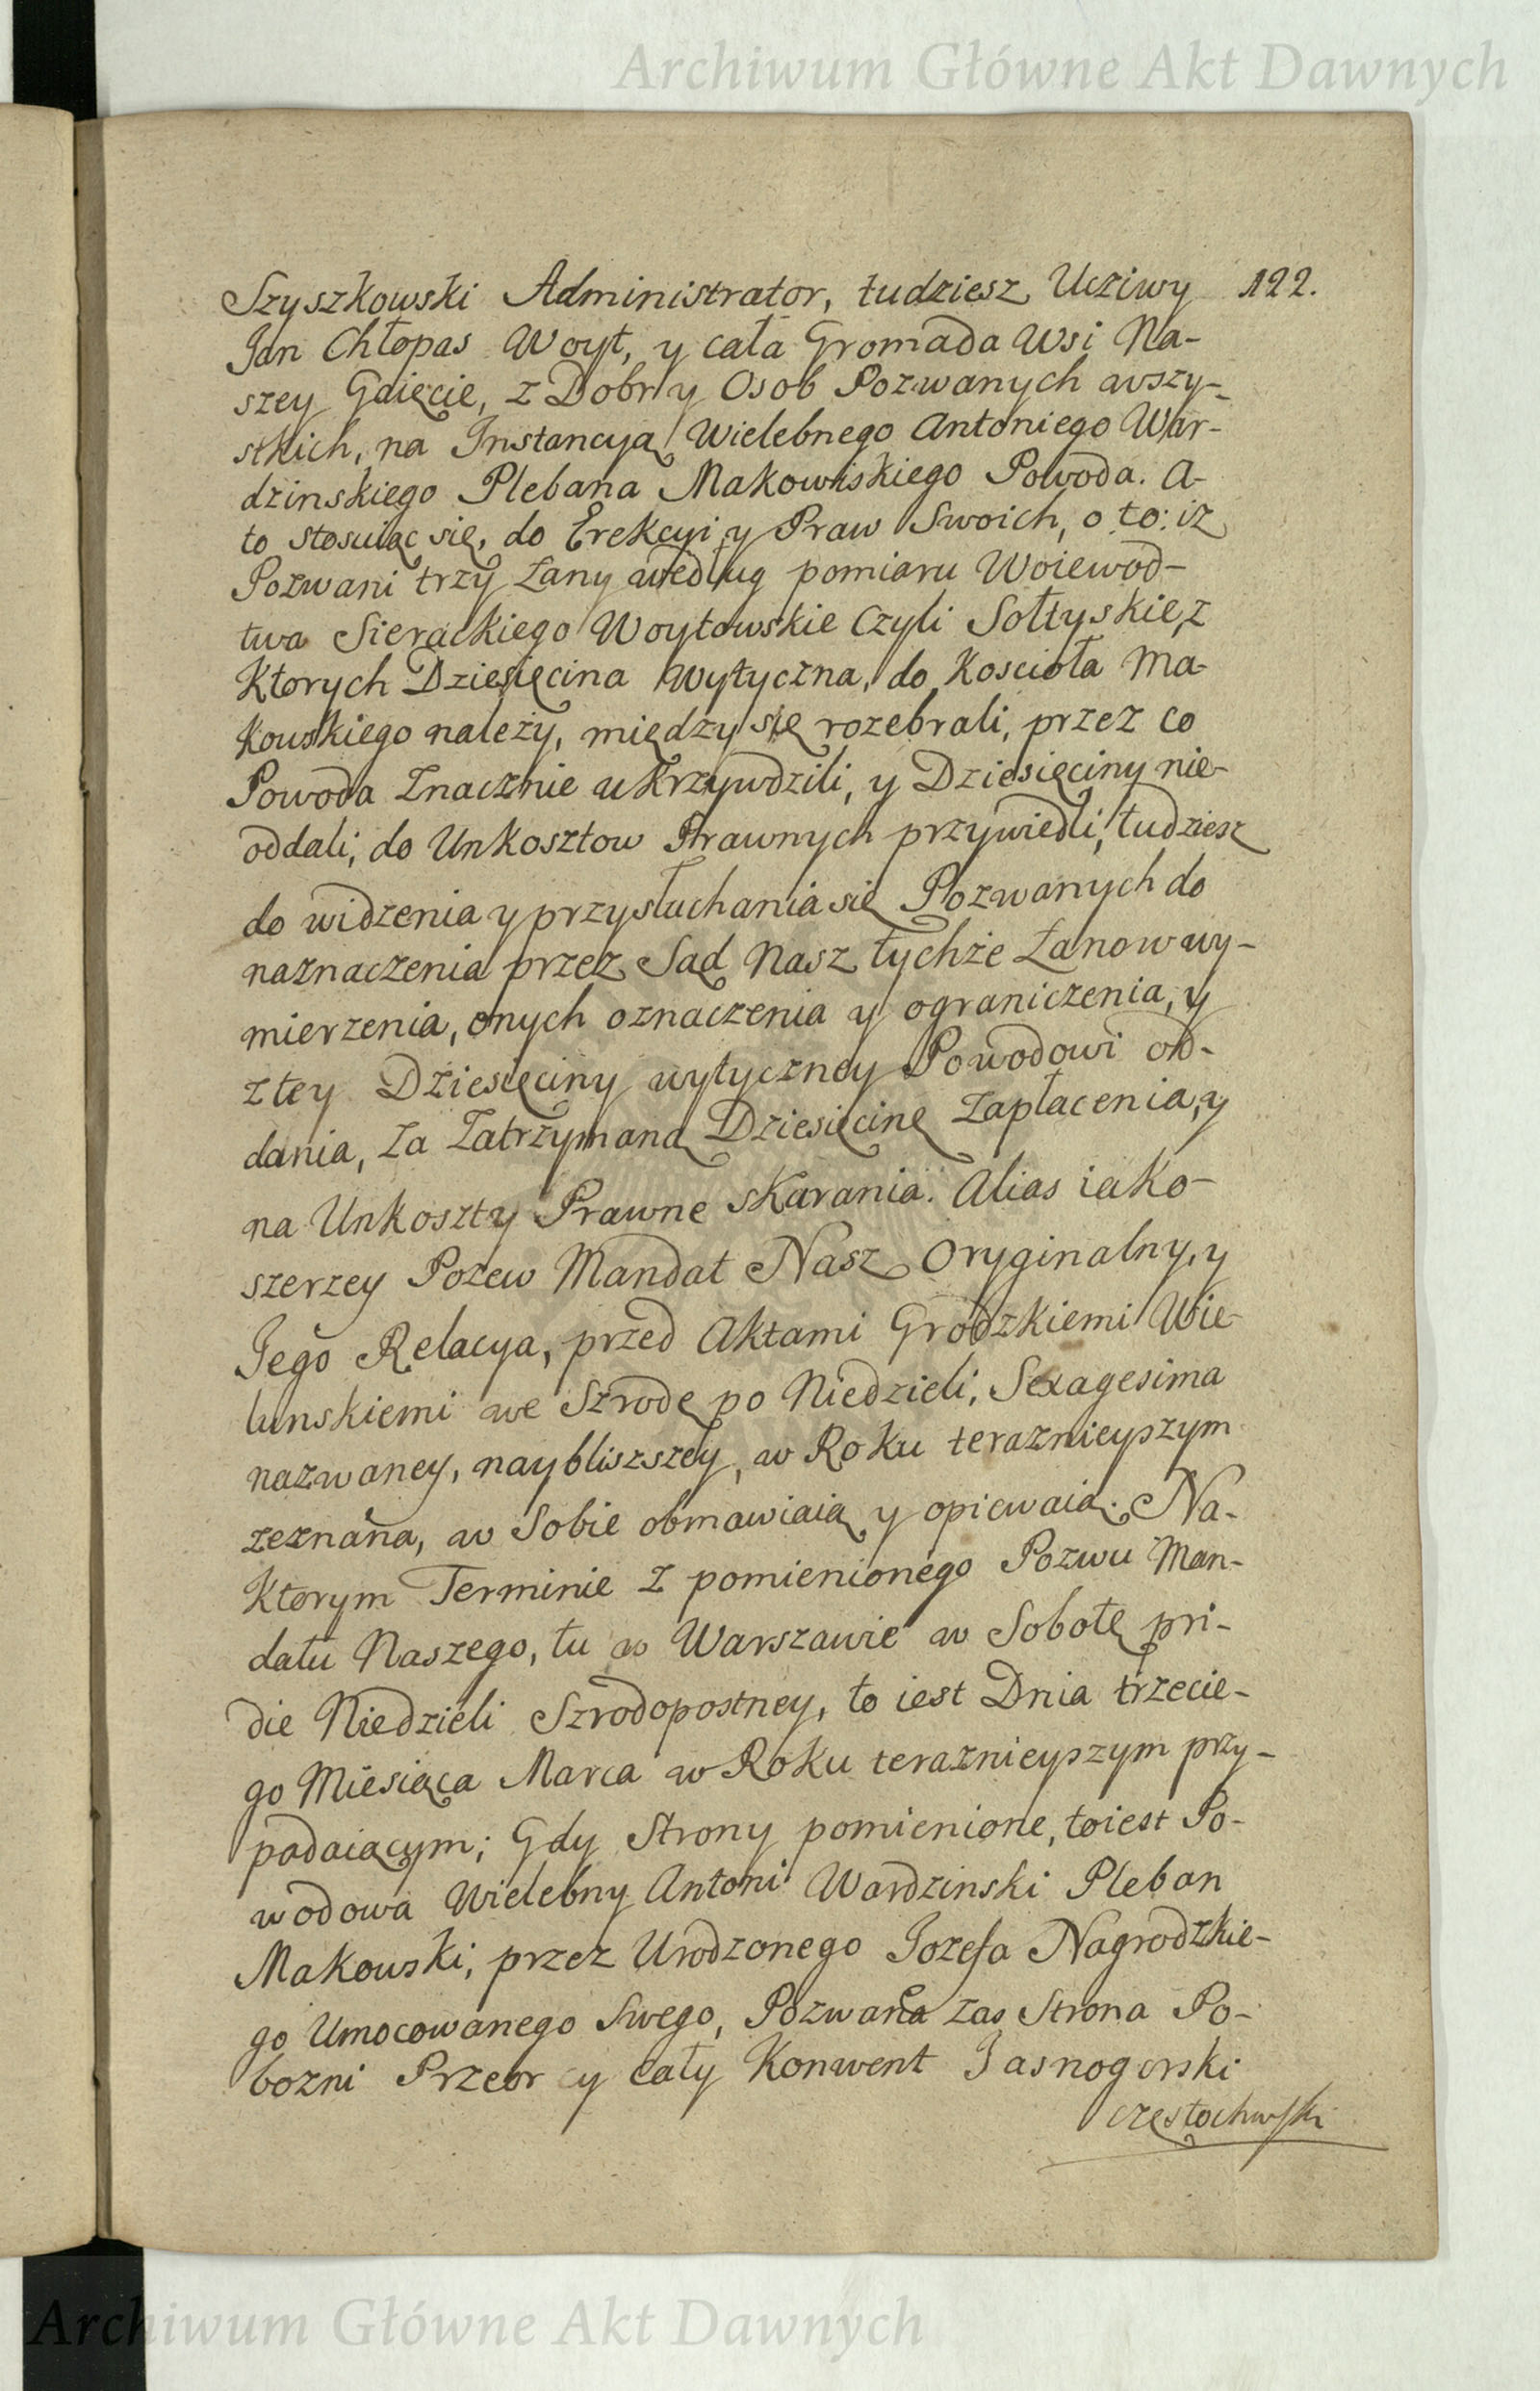 Archiwum Główne Akt Dawnych
Szyszkowski Administrator, tudziesz Ucziwy 122.
Jan Chłopas Woyt, y cała Gromada Wsi Na-
szey Gdięcie, z Dobr y Osob Pozwanych wszy-
stkich, na Instancyą Wielebnego Antoniego War-
dzinskiego Plebana Makowskiego Powoda. A-
to stosuiąc się, do Erekcyi y Praw Swoich, o to: iż
Pozwani trzy Łany według pomiaru Woiewod-
twa Sierackiego Woytowskie czyli Sołtyskie, z
Ktorych Dziesięcina Wytyczna, do Koscioła Ma-
kowskiego należy, między się rozebrali, przez co
Powoda Znacznie ukrzywdzili, y Dziesięciny nie-
oddali, do Unkosztow Prawnych przywiedli, tudziesz
do widzenia y przysłuchania się Pozwanych do
naznaczenia przez Sąd Nasz tychże Łanow wy-
mierzenia, onych oznaczenia y ograniczenia, y
z tey Dziesięciny wytyczney Powodowi od-
dania, Za Zatrzymaną Dziesięcinę Zapłacenia, y
na Unkoszty Prawne skarania. Alias iako-
szerzey Pozew Mandat Nasz Oryginalny, y
Jego Relacya, przed Aktami Grodzkiemi Wie-
lunskiemi we Szrodę po Niedzieli, Sexagesima
nazwaney, naybliszszey, w Roku teraznieyszym
zeznana, w Sobie obmawiaią y opiewaią. Na-
Ktorym Terminie z pomienionego Pozwu Man-
datu Naszego, tu w Warszawie w Sobotę pri-
die Niedzieli Szrodopostney, to iest Dnia trzecie-
go Miesiąca Marca w Roku teraznieyszym przy-
padaiącym; Gdy Strony pomienione, toiest Po-
wodowa Wielebny Antoni Wardzinski Pleban
Makowski, przez Urodzonego Jozefa Nagrodzkie-
go Umocowanego Swego, Pozwana zas Strona Po-
bozni Przeor y cały Konwent Jasnogorski
częstochwski
Archiwum Główne Akt Dawnych